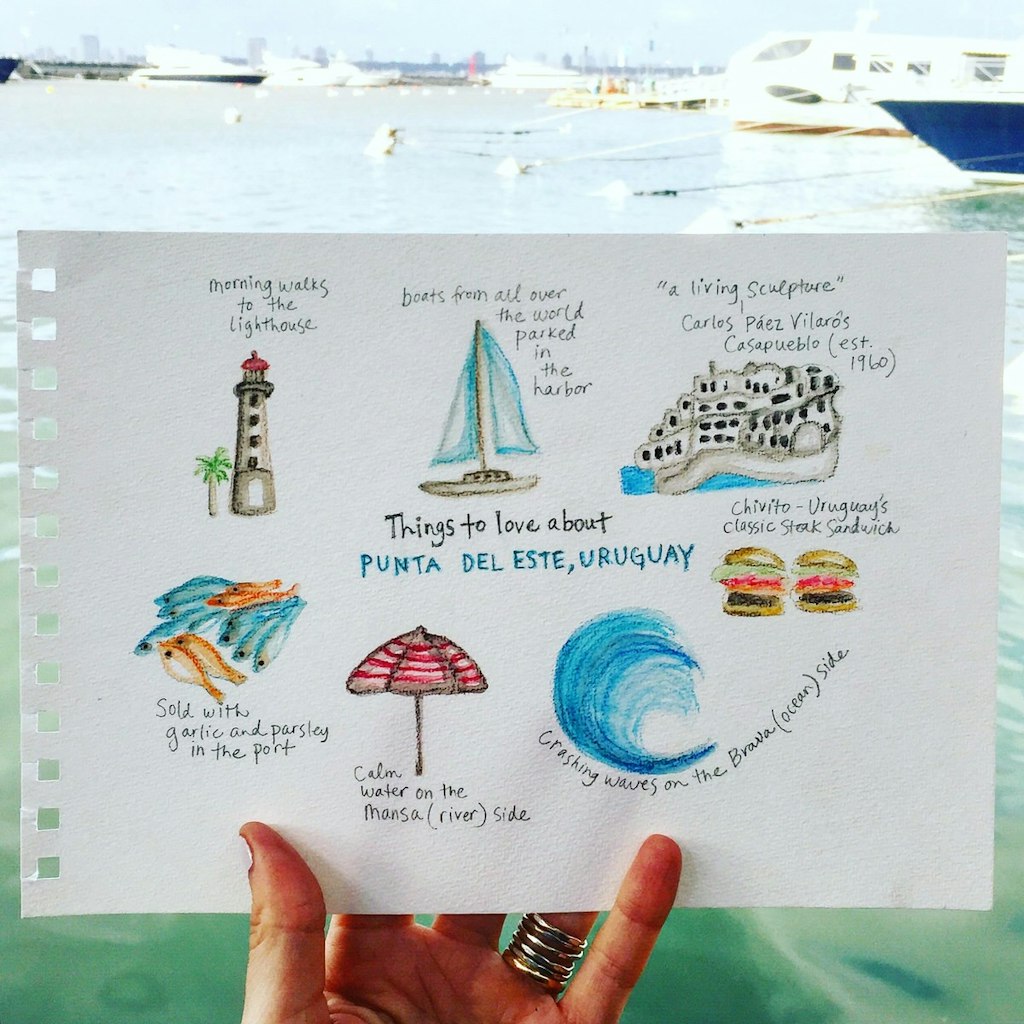 morning walks
to the
lighthouse
boats from all over
the world
parked
in
the
harbor
"a living sculpture"
Carlos Páez Vilaró's
Casapueblo (est.
1960)
Things to love about
PUNTA DEL ESTE, URUGUAY
Chivito - Uruguay's
classic steak sandwich
Sold with
garlic and parsley
in the port
Calm
water on the
Mansa (river) side
Crashing waves on the Brava (ocean) side